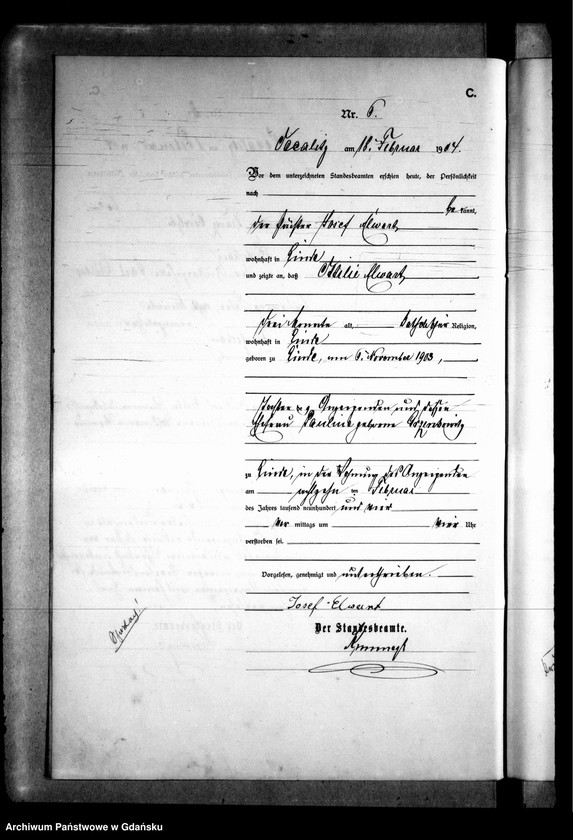 C.
Nr. 6.
am 18. Februar 1904.
Vor dem unterzeichneten Standesbeamten erschien heute, der Persönlichkeit
nach
be kannt,
der Josef Elwart
wohnhaft in Linde
und zeigte an, daß Ottilie Elwart,
drei Monate alt, katholischer Religion,
wohnhaft in Linde
geboren zu Linde, am 6. November 1903,
Tochter des Anzeigenden und dessen
Ehefrau Pauline geborene
zu Linde, in der Wohnung des Anzeigenden
am achtzehn ten Februar
des Jahres tausend neunhundert und vier
Vor mittags um vier Uhr
verstorben sei.
Vorgelesen, genehmigt und unterschrieben.
Josef Elwart
Der Standesbeamte.
Archiwum Państwowe w Gdańsku